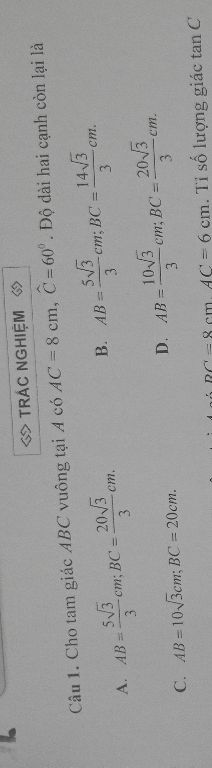 TRẮC NGHIỆM
Câu 1. Cho tam giác ABC vuông tại A có AC = 8 cm, Ĉ = 60⁰. Độ dài hai cạnh còn lại là
A. AB = 5√3/3 cm; BC = 20√3/3 cm.
B. AB = 5√3/3 cm; BC = 14√3/3 cm.
C. AB = 10√3cm; BC = 20cm.
D. AB = 10√3/3 cm; BC = 20√3/3 cm.
BC = 8 cm, AC = 6 cm. Tỉ số lượng giác tan C